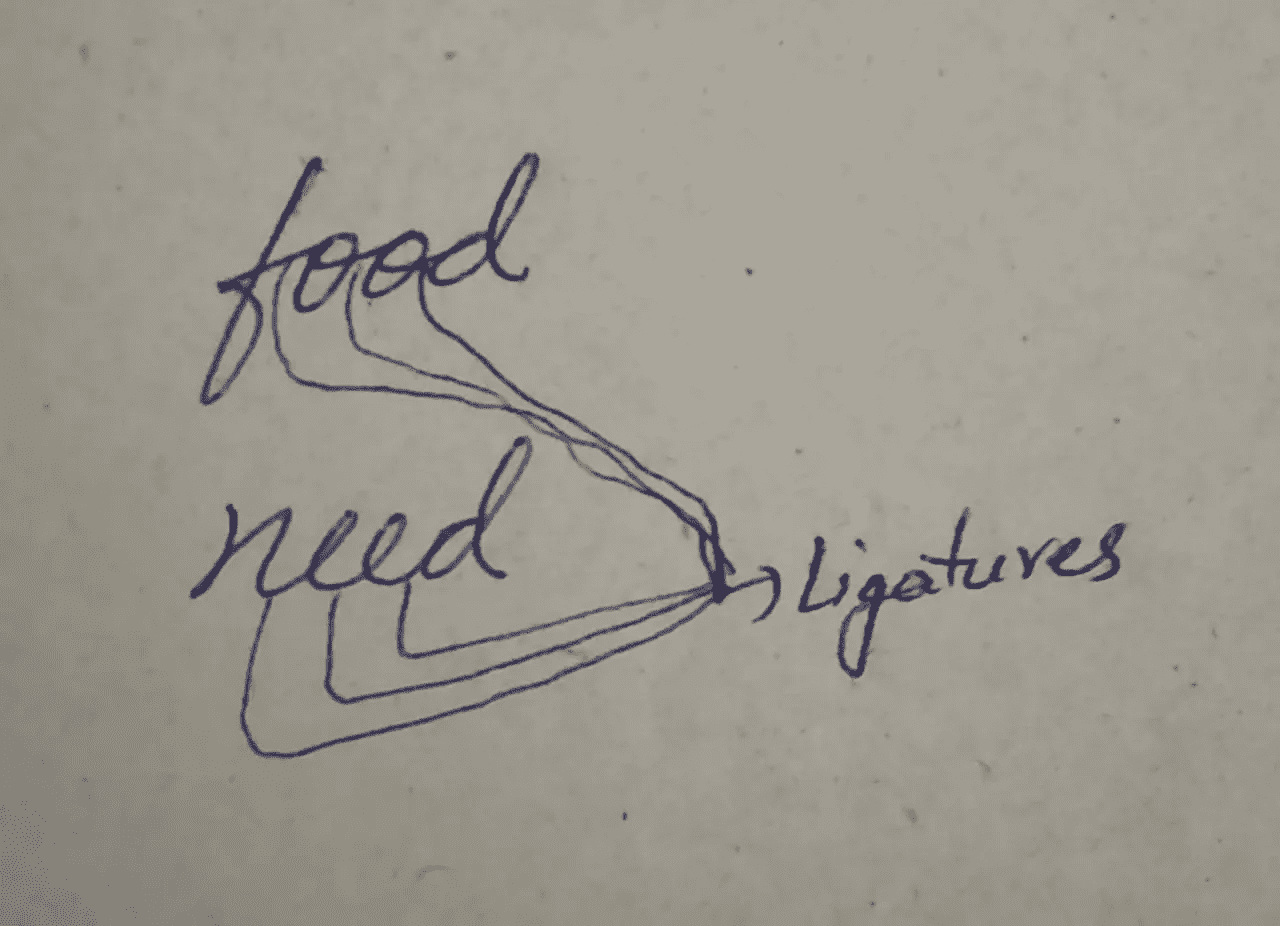 food
need
Ligatures